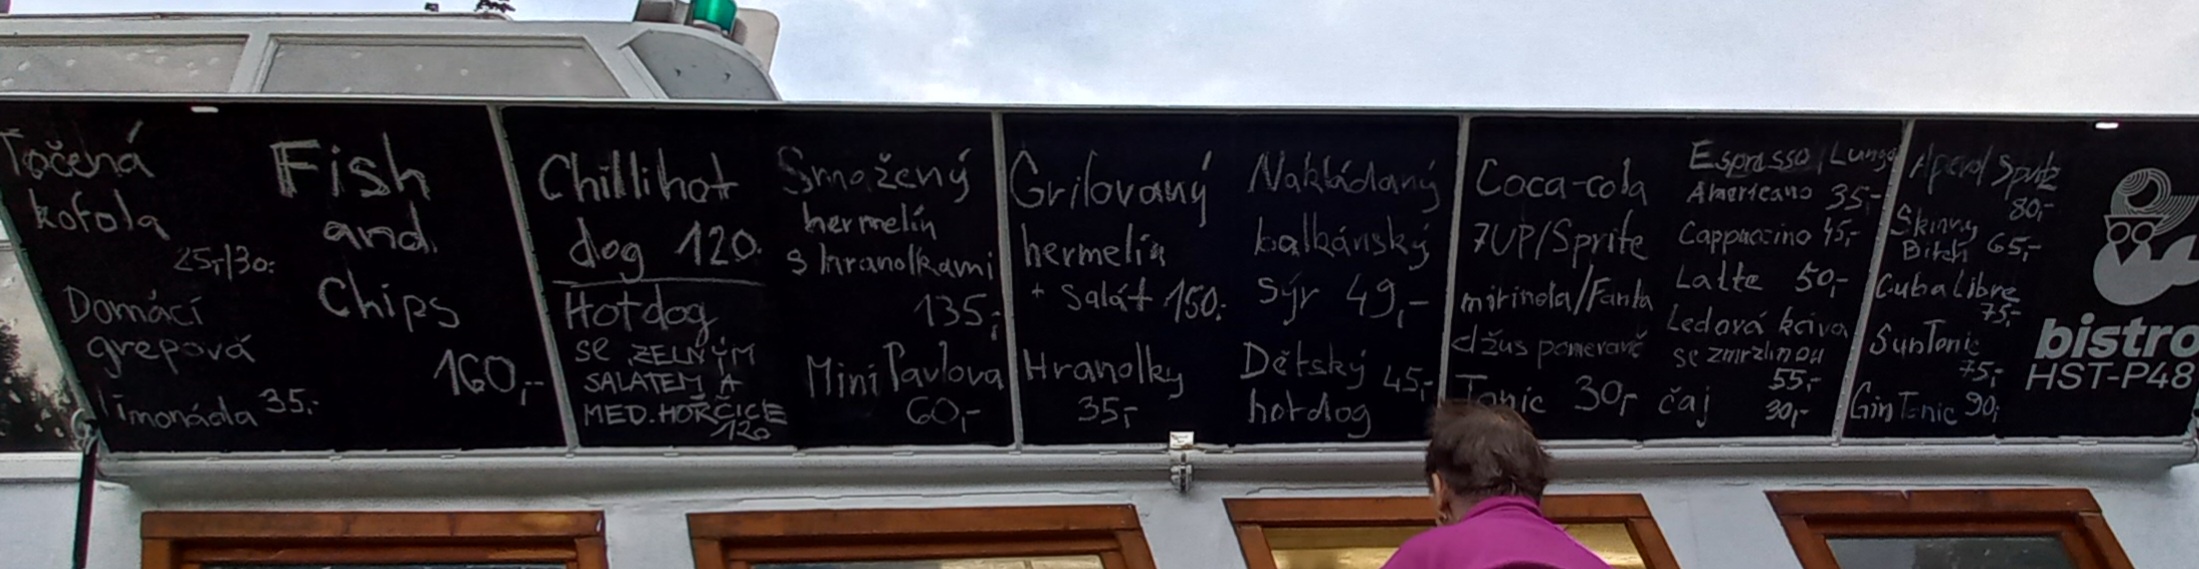 Točená
kofola
25,-/30.-
Domácí
grepová
limonáda 35.-
Fish
and
Chips
160,-
Chillihot
dog 120.
Hotdog
se ZELNÝM
SALÁTEM A
MED.HOŘČICE
120
Smažený
hermelín
s hranolkami
135,-
Mini Pavlova
60,-
Grilovaný
hermelín
+ Salát 150.-
Hranolky
35,-
Nakládaný
balkánský
Sýr 49,-
Dětský 45,-
hotdog
Coca-cola
7UP/Sprite
mirinda/Fanta
džus pomeranč
Tonic 30,-
Espresso Lungo
Americano 35,-
Cappuccino 45,-
Latte 50,-
Ledová káva
se zmrzlinou
55,-
čaj 30,-
Aperol Spritz
80,-
Skinny
Bitch 65,-
Cuba Libre
75,-
SunTonic
75,-
Gin Tonic 90,-
bistro
HST-P48